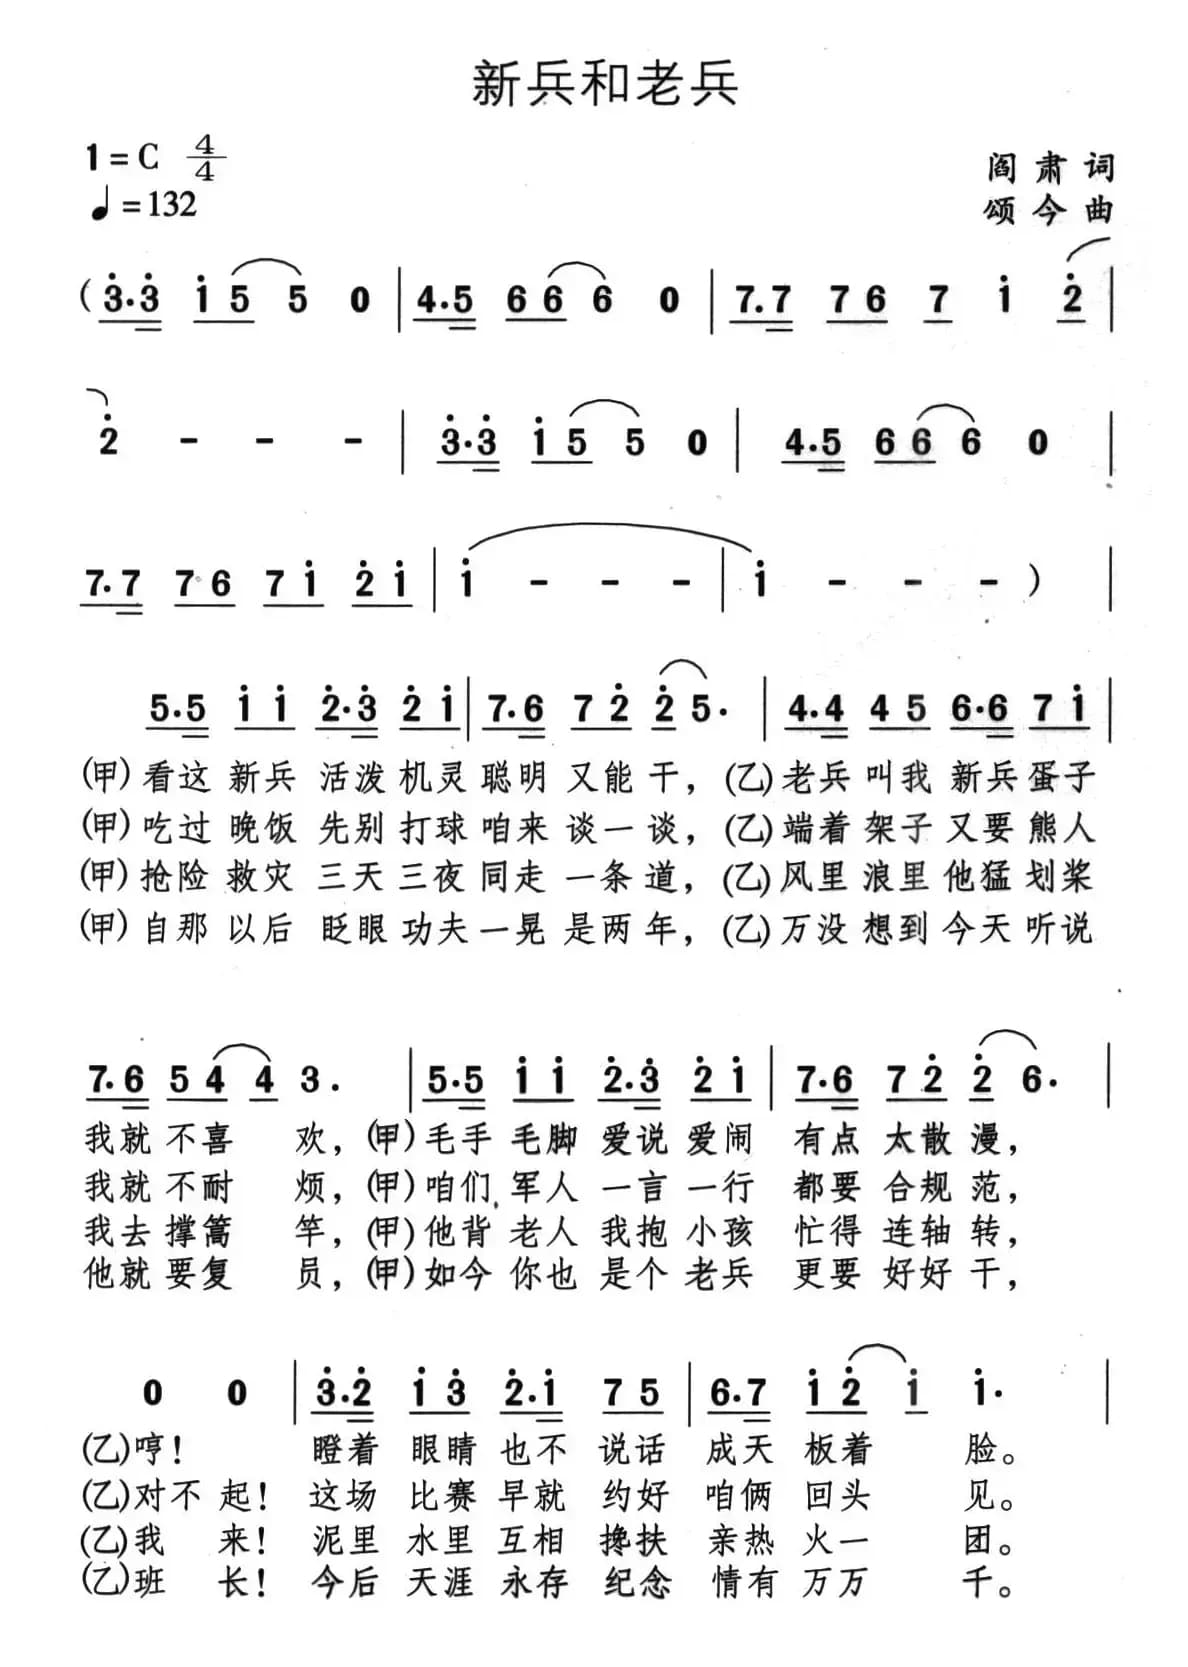 新兵和老兵
1=C 4/4
♩=132
阎肃词
颂今曲
(3̇.3̇ 1̇5 5 0 | 4.5 66 6 0 | 7.7 76 7 1̇ 2̇ |
2̇ - - - | 3̇.3̇ 1̇5 5 0 | 4.5 66 6 0 |
7.7 76 71̇ 2̇1̇ | 1̇ - - - | 1̇ - - - ) |
5.5 1̇1̇ 2̇.3̇ 2̇1̇ | 7.6 72̇ 2̇ 5. | 4.4 45 6.6 71̇ |
(甲)看这新兵 活泼机灵聪明又能干，(乙)老兵叫我新兵蛋子
(甲)吃过晚饭 先别打球咱来谈一谈，(乙)端着架子又要熊人
(甲)抢险救灾 三天三夜同走一条道，(乙)风里浪里他猛划桨
(甲)自那以后 眨眼功夫一晃是两年，(乙)万没想到今天听说
7.6 54 4 3. | 5.5 1̇1̇ 2̇.3̇ 2̇1̇ | 7.6 72̇ 2̇ 6. |
我就不喜 欢，(甲)毛手毛脚爱说爱闹 有点太散漫，
我就不耐 烦，(甲)咱们军人一言一行 都要合规范，
我去撑篙 竿，(甲)他背老人我抱小孩 忙得连轴转，
他就要复 员，(甲)如今你也是个老兵 更要好好干，
0 0 | 3̇.2̇ 1̇3̇ 2̇.1̇ 75 | 6.7 1̇2̇ 1̇ 1̇. |
(乙)哼！ 瞪着眼睛也不说话 成天板着 脸。
(乙)对不起！这场比赛早就约好 咱俩回头 见。
(乙)我 来！泥里水里互相搀扶 亲热火一 团。
(乙)班 长！今后天涯永存纪念 情有万万 千。